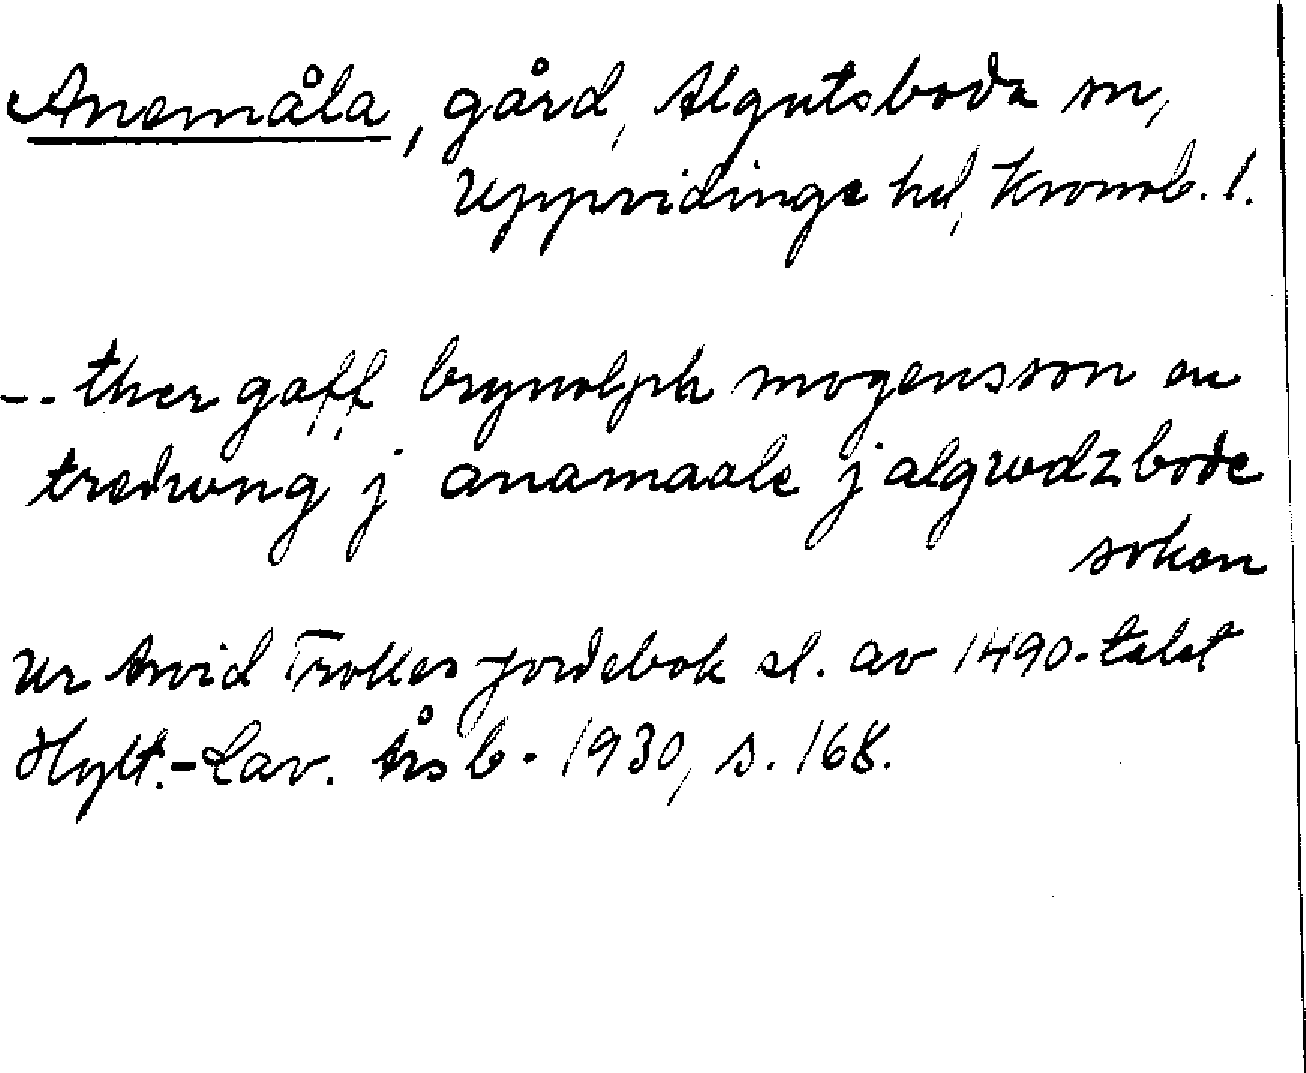 Anemåla, gård, Algutsboda sn,
Uppvidinge hd, Kronob. l.
-- ther gaff brynolph mogensson en
tredwng j anamaale j algwdzbode
soken
Ur Arvid Trolles jordebok sl. av 1490-talet
Hylt.-Cav. Årsb. 1930, s. 168.